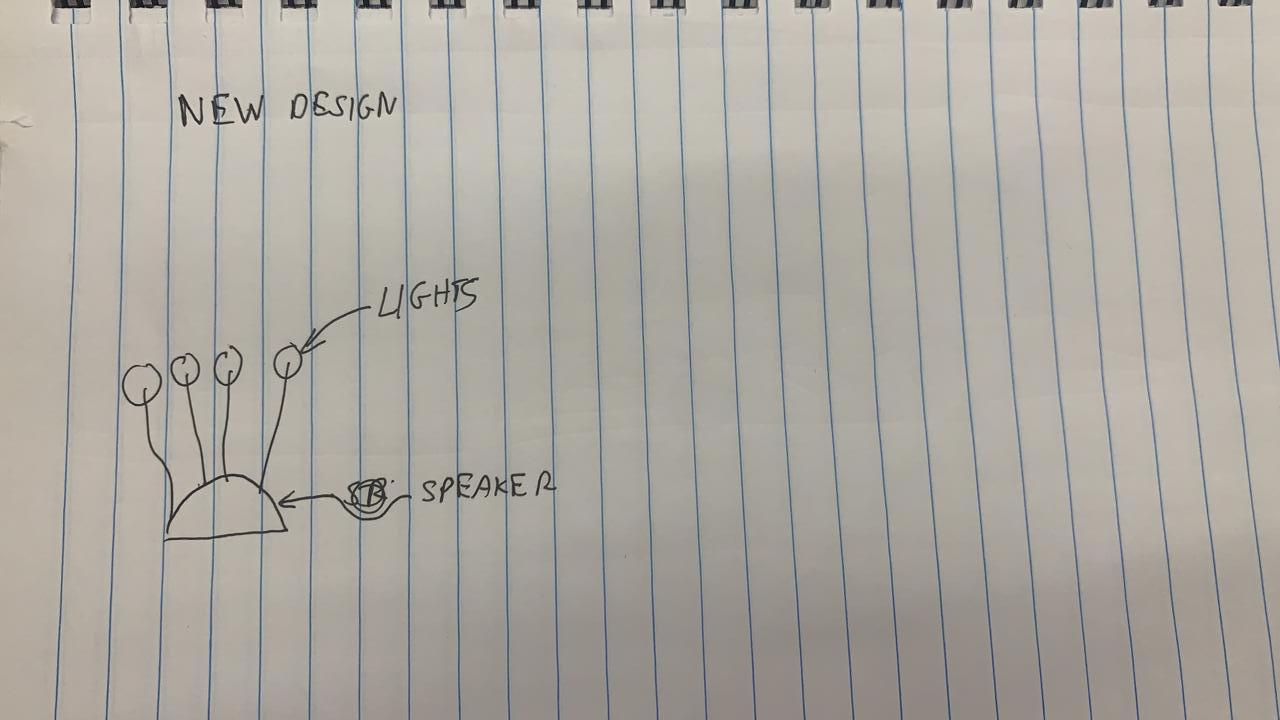 NEW DESIGN
LIGHTS
SPEAKER